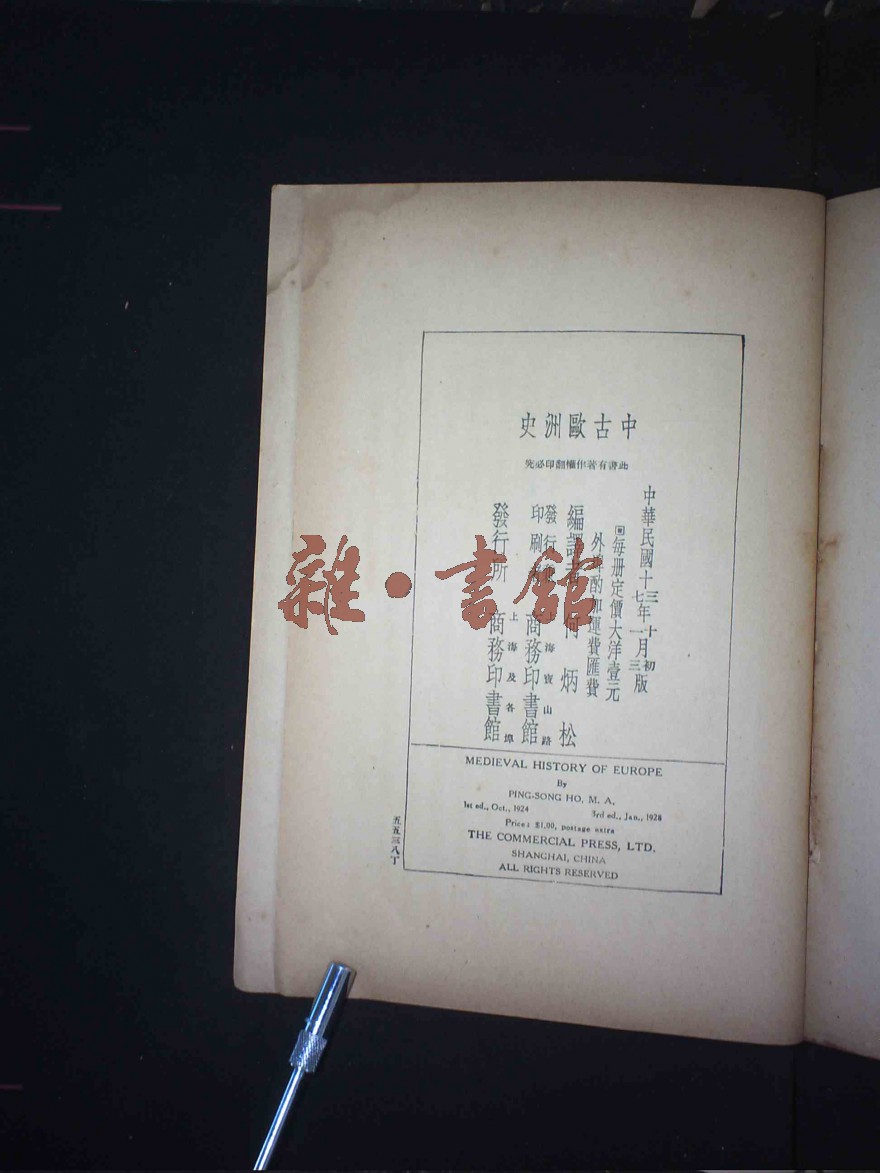 中古歐洲史
此書有著作權翻印必究
中華民國十三年十月初版
中華民國十七年一月三版
每册定價大洋壹元
外埠酌加運費匯費
編譯者 何炳松
發行兼印刷者 上海寶山路 商務印書館
發行所 上海及各埠 商務印書館
MEDIEVAL HISTORY OF EUROPE
By
PING-SONG HO, M. A.
1st ed., Oct., 1924 3rd ed., Jan., 1928
Price: $1.00, postage extra
THE COMMERCIAL PRESS, LTD.
SHANGHAI, CHINA
ALL RIGHTS RESERVED
五五三八丁
雜·書館